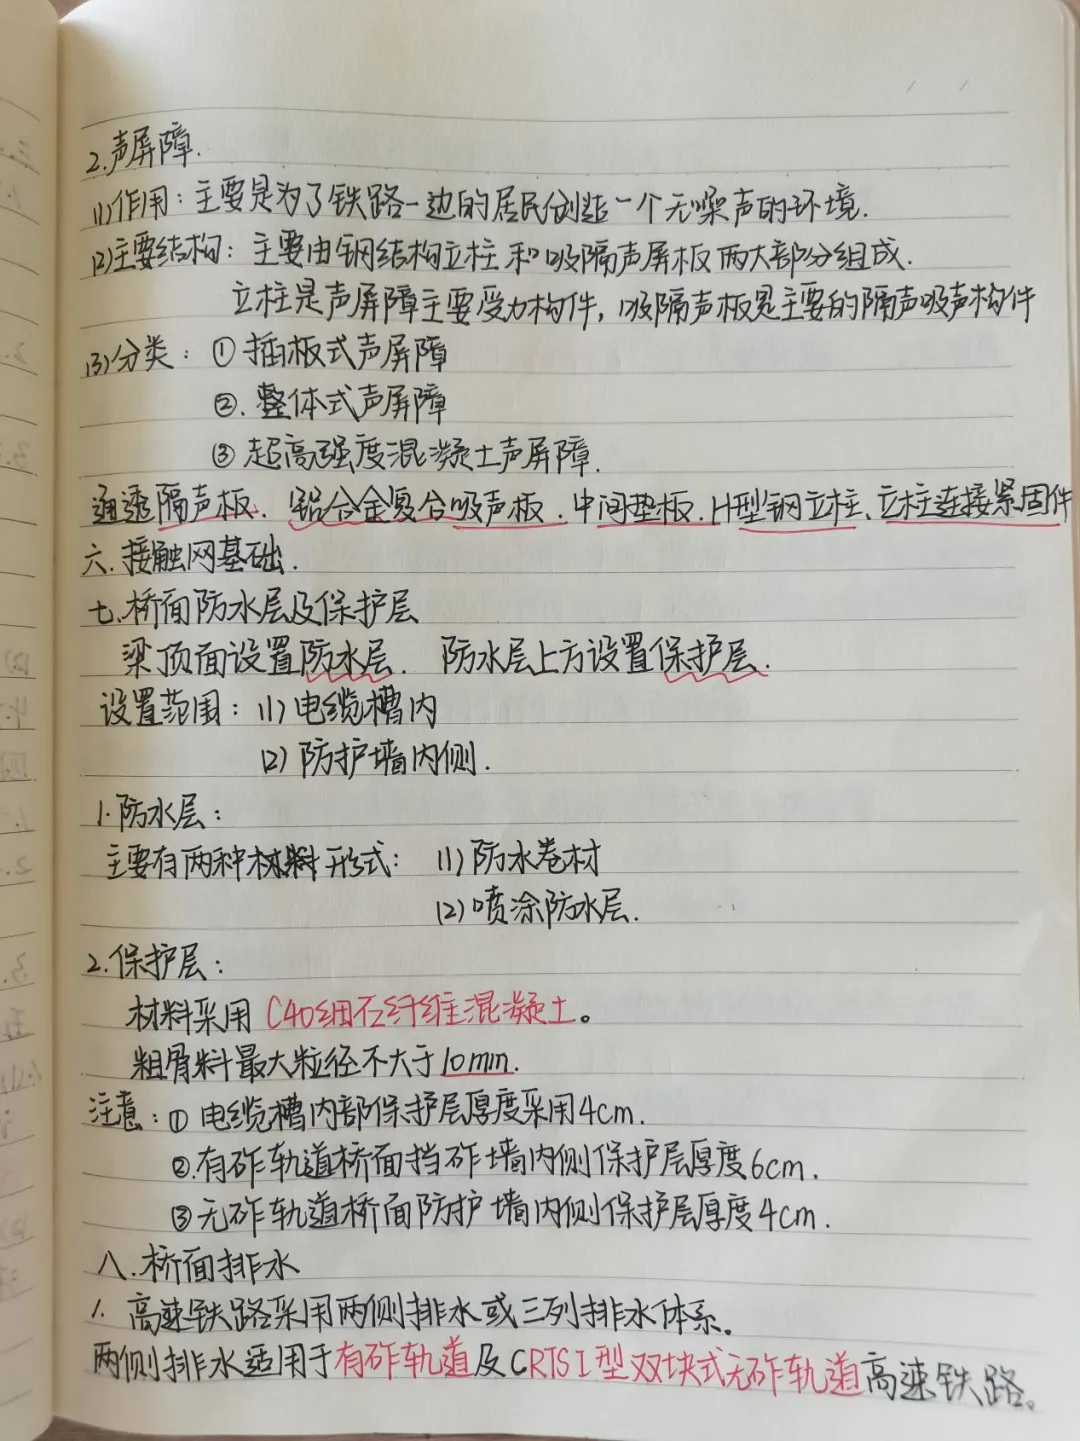 2.声屏障.
(1)作用:主要是为了铁路一边的居民创造一个无噪声的环境.
(2)主要结构:主要由钢结构立柱和吸隔声屏板两大部分组成.
立柱是声屏障主要受力构件,吸隔声板是主要的隔声吸声构件
(3)分类:①插板式声屏障
②.整体式声屏障
③超高强度混凝土声屏障.
通透隔声板、铝合金复合吸声板.中间垫板.H型钢立柱、立柱连接紧固件
六.接触网基础.
七.桥面防水层及保护层
梁顶面设置防水层. 防水层上方设置保护层.
设置范围:(1)电缆槽内
(2)防护墙内侧.
1.防水层:
主要有两种材料形式: (1)防水卷材
(2)喷涂防水层.
2.保护层:
材料采用C40细石纤维混凝土。
粗骨料最大粒径不大于10mm.
注意:①电缆槽内部保护层厚度采用4cm.
②.有砟轨道桥面挡砟墙内侧保护层厚度6cm.
③无砟轨道桥面防护墙内侧保护层厚度4cm.
八.桥面排水
1.高速铁路采用两侧排水或三列排水体系。
两侧排水适用于有砟轨道及CRTSI型双块式无砟轨道高速铁路。